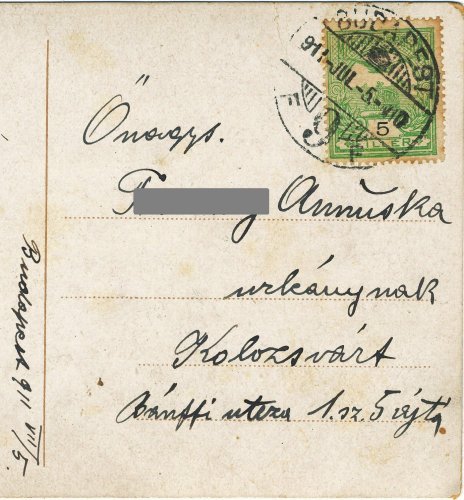 BUDAPEST
911 JUL. 5.
5
FILLÉR
Önagys.
Annuska
urleánynak
Kolozsvárt
Bánffi utcza 1. sz. 5 ajtó
Budapest 911 VII/5.